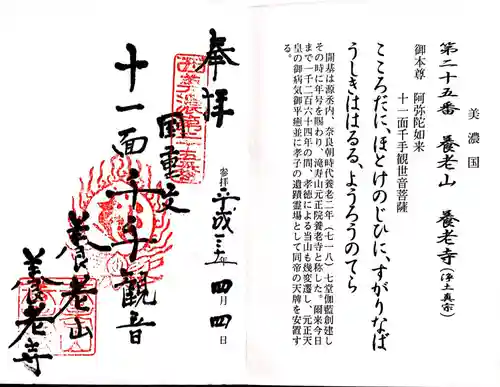 美濃国
第二十五番 養老山 養老寺(浄土真宗)
御本尊 阿弥陀如来
十一面千手観世音菩薩
こころだに、ほとけのじひに、すがりなば
うしきははるる、ようろうのてら
開基は源丞内、奈良朝時代養老二年(七一八)七堂伽藍創建し
その時に年号を賜わり、滝寿山元正院養老寺と称した。爾来今日
まで一千二百六十四年の間、孝徳による当山も幾変遷し、元正天
皇の御病気御平癒並に孝子の遺蹟霊場として同帝の天牌を安置す
る。
奉拝
参拝 平成三十年 四月四日
国重文
十一面千手観音
養老山
養老寺